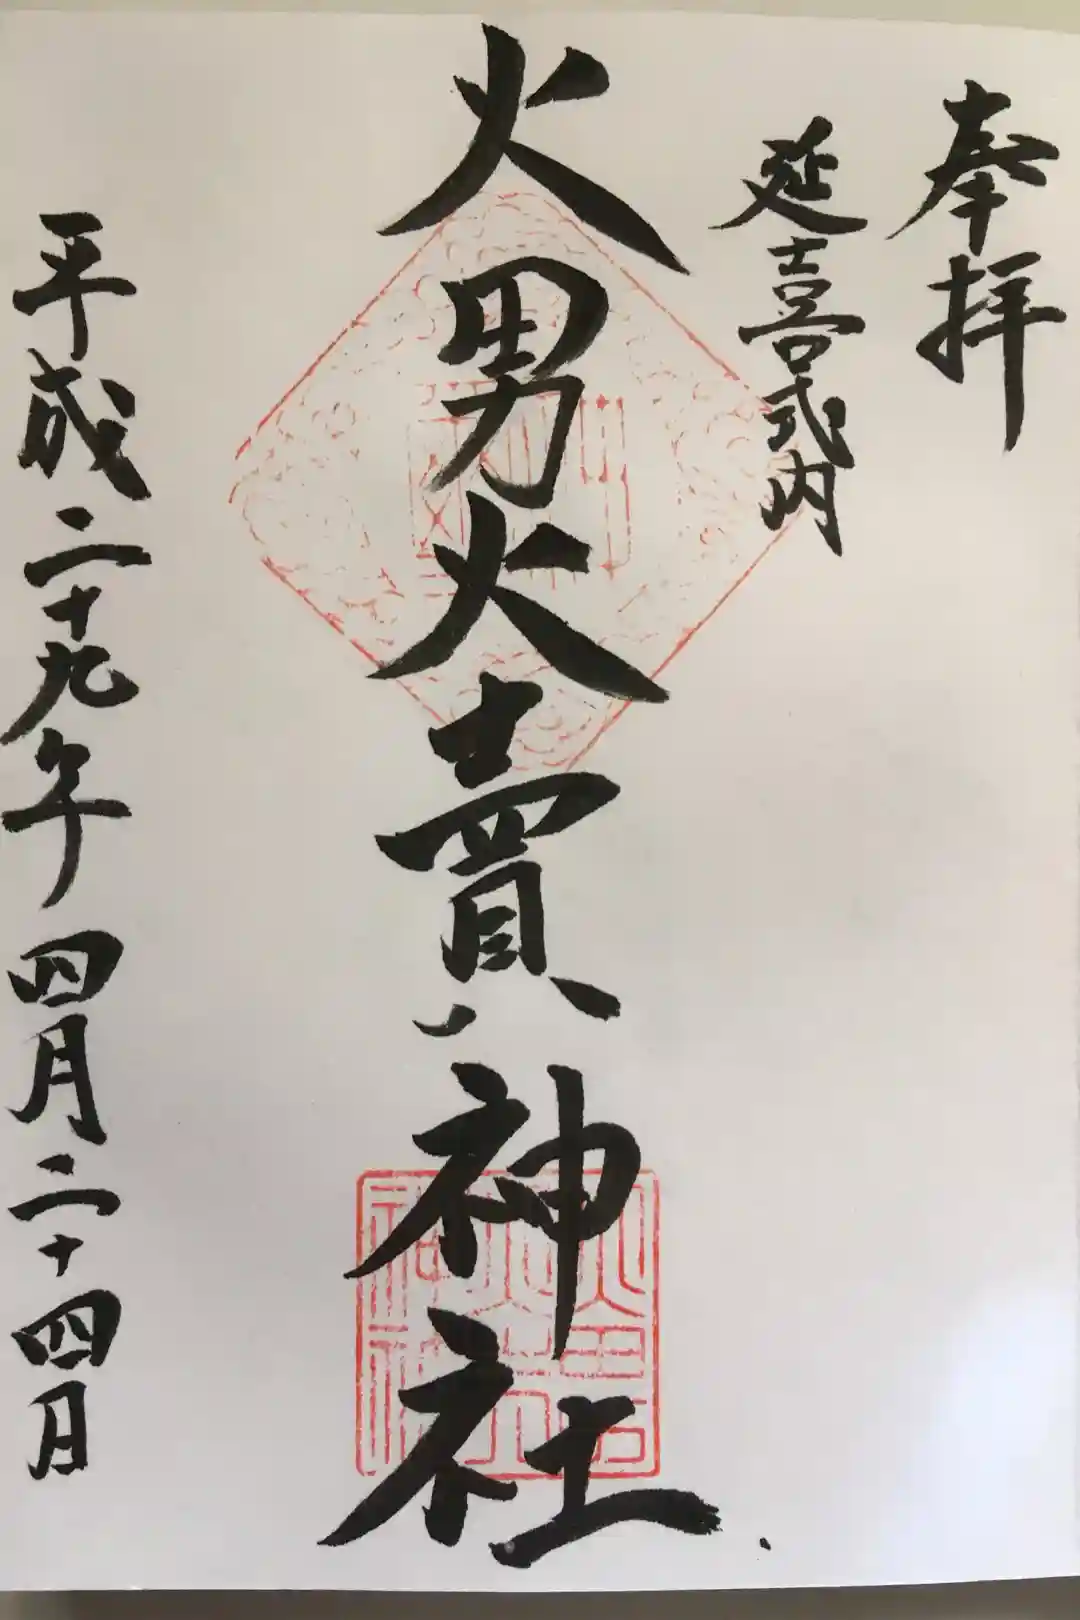 奉拝
延喜式内
火男火賣神社
平成二十九年四月二十四日